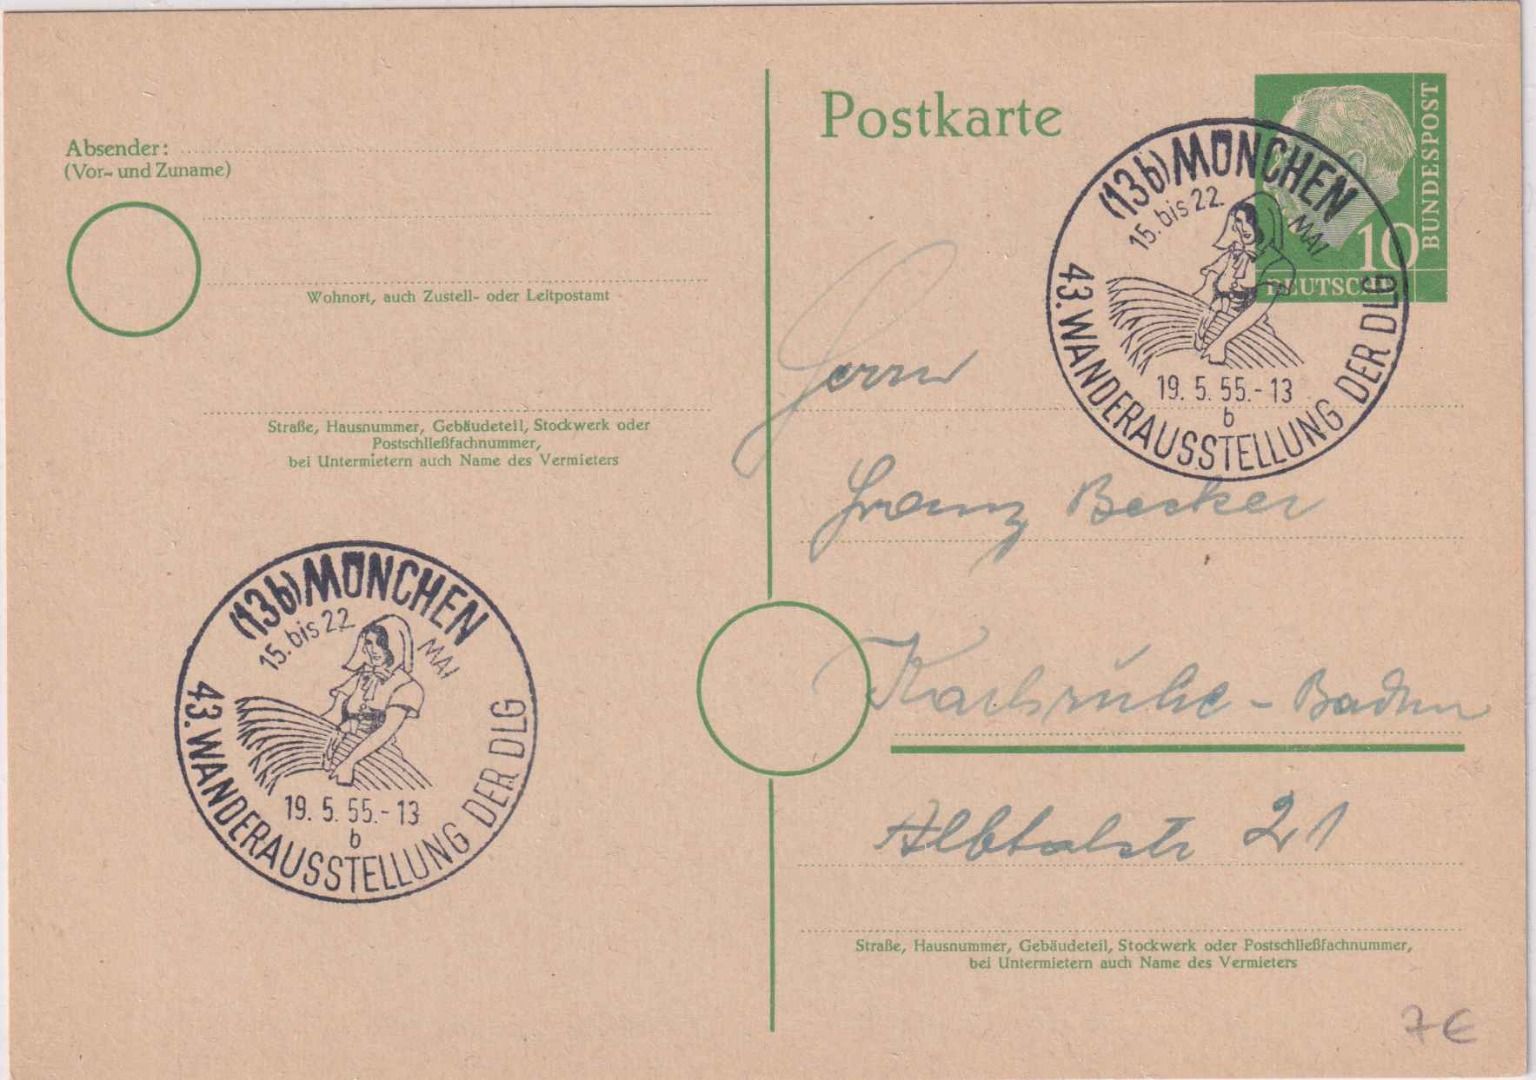 Absender:
(Vor- und Zuname)
Wohnort, auch Zustell- oder Leitpostamt
Straße, Hausnummer, Gebäudeteil, Stockwerk oder
Postschließfachnummer,
bei Untermietern auch Name des Vermieters
(13b) MÜNCHEN
15. bis 22. MAI
19.5.55.-13
b
43. WANDERAUSSTELLUNG DER DLG
Postkarte
DEUTSCHE
BUNDESPOST
10
(13b) MÜNCHEN
15. bis 22. MAI
19.5.55.-13
b
43. WANDERAUSSTELLUNG DER DLG
Herrn
Franz Becker
Karlsruhe-Baden
Albtalstr 21
Straße, Hausnummer, Gebäudeteil, Stockwerk oder Postschließfachnummer,
bei Untermietern auch Name des Vermieters
7€